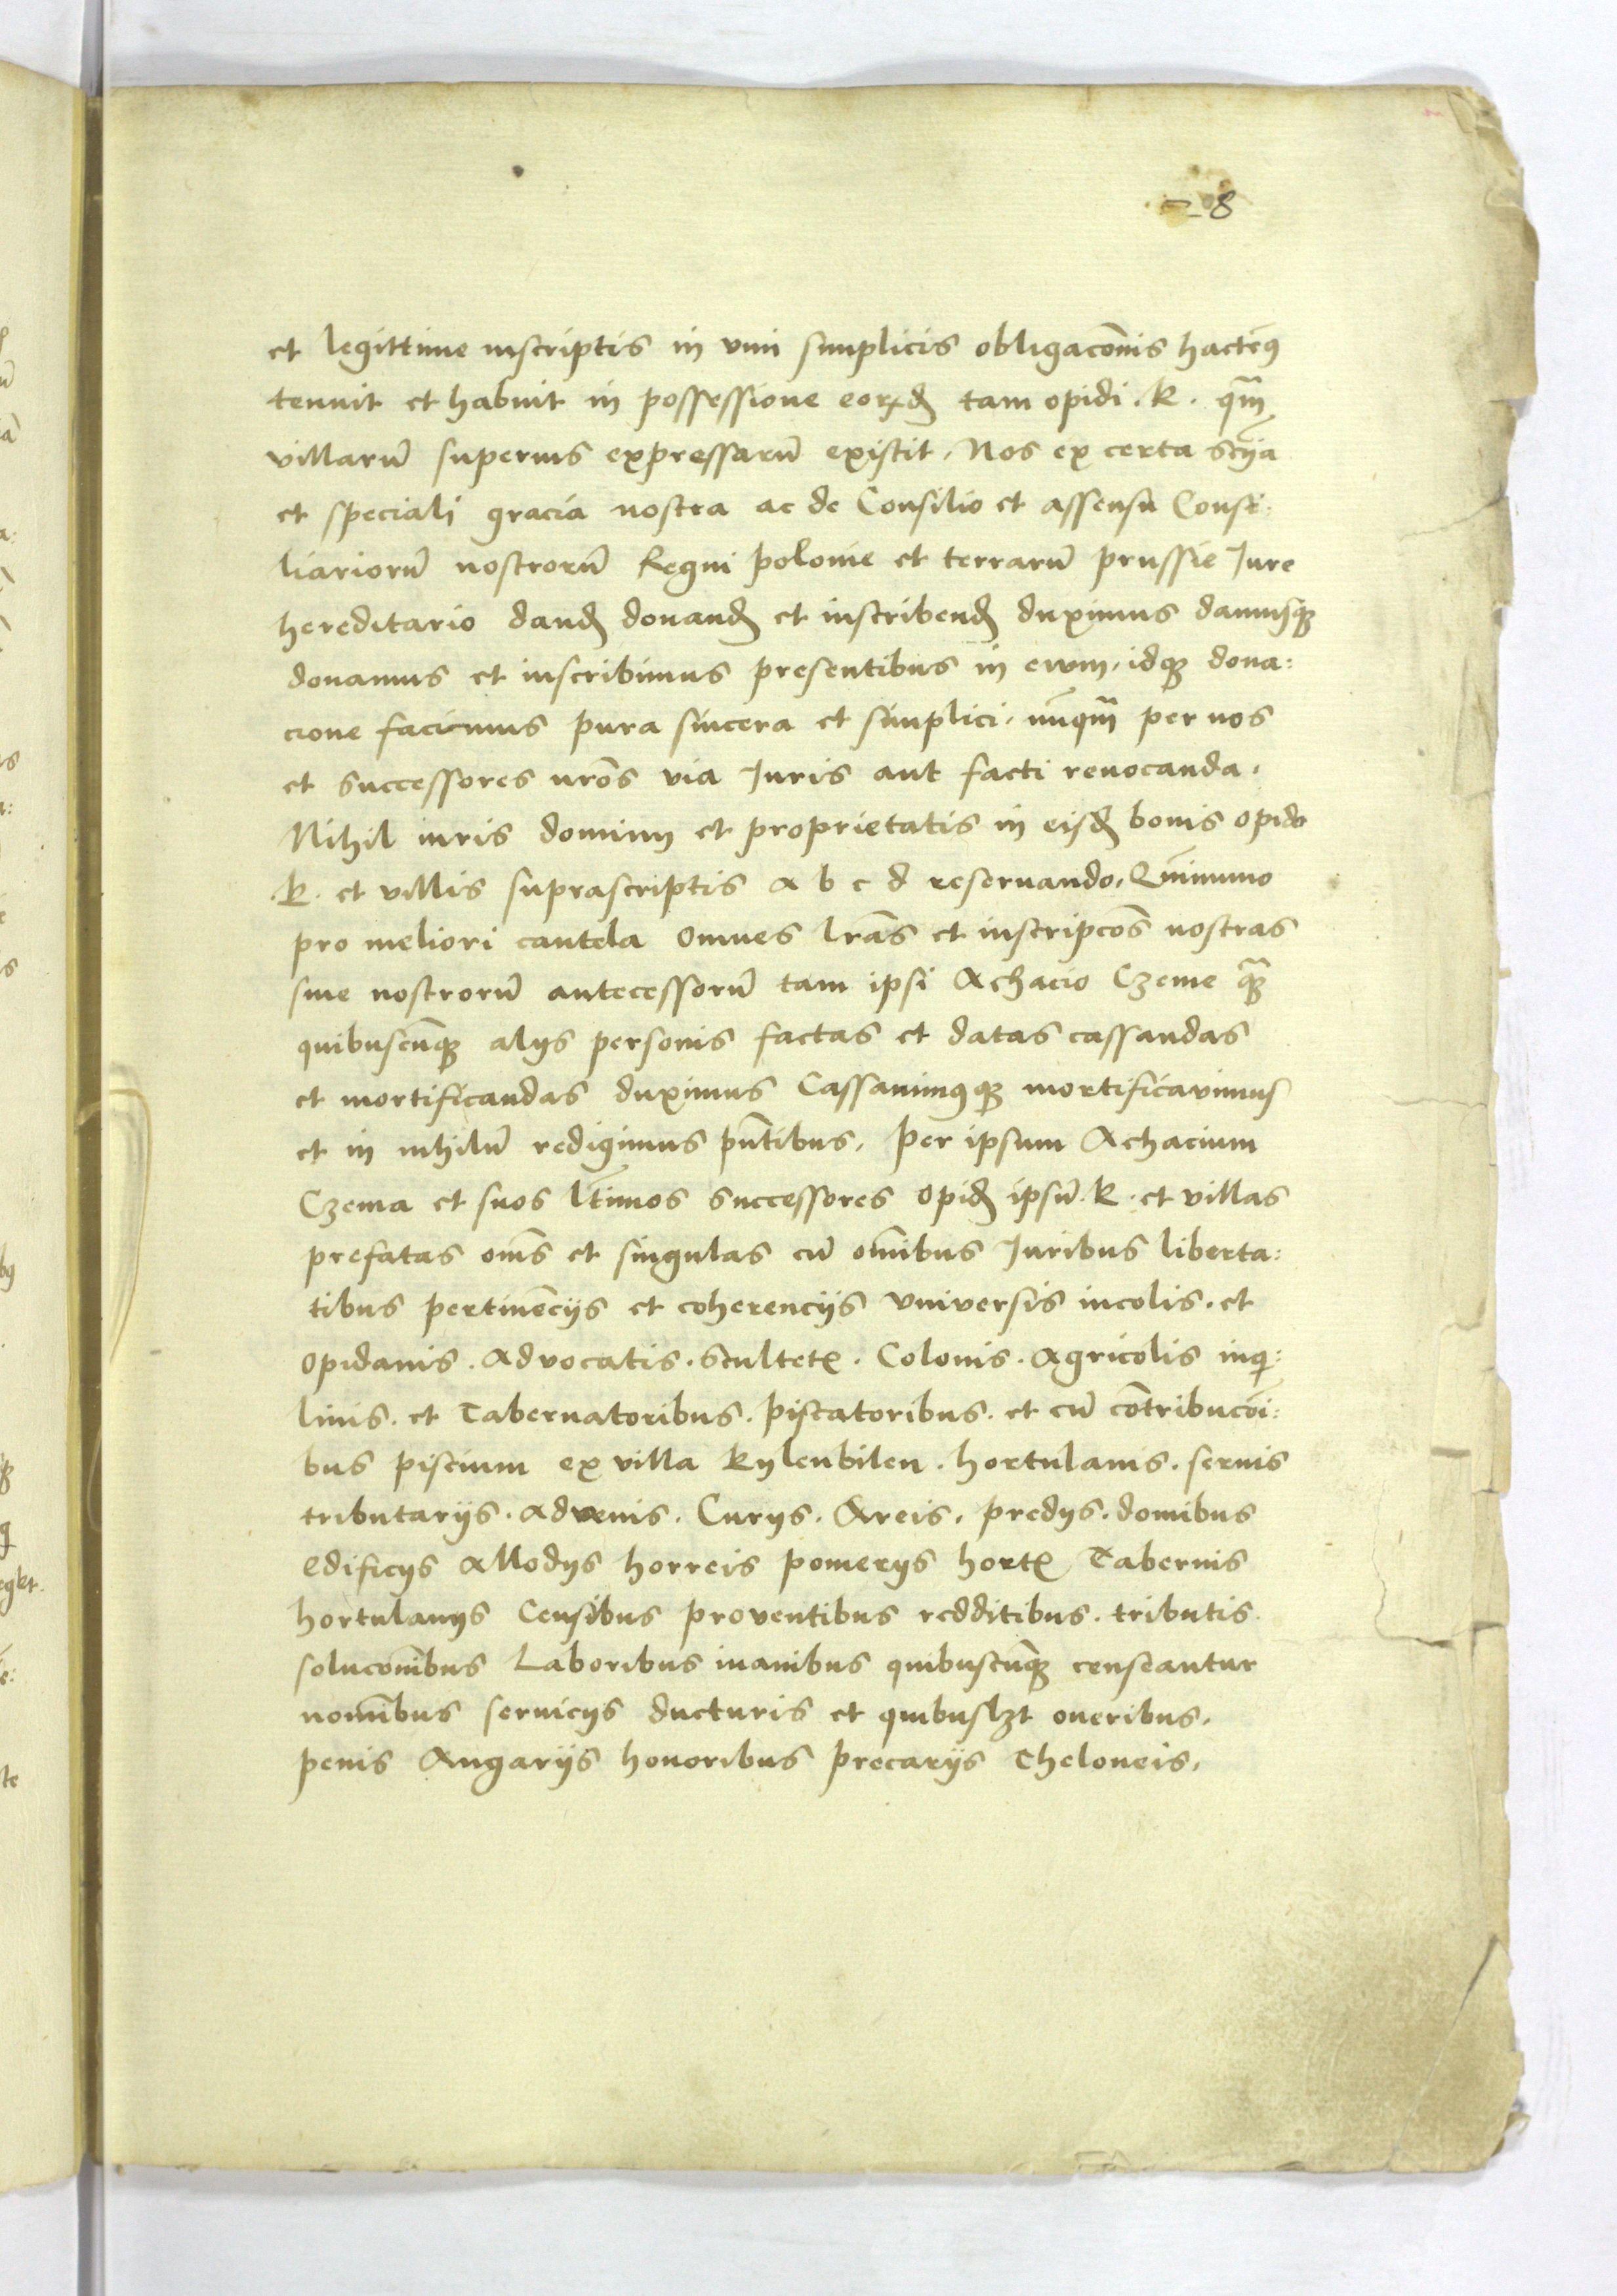 8
et legittime inscriptis in vim simplicis obligacōnis hacten9
tenuit et habuit in possessione eorꝝdē tam opidi . k . qm̄
villarū superius expressarū existit . Nos ex certa scīa
et speciali gracia nostra ac de Consilio et assensu Consi:
liariorū nostrorū Regni polonie et terrarū prussie Jure
hereditario dandū donandū et inscribendū duximus damusqȝ
donamus et inscribimus presentibus in evum . idqȝ dona:
cione facimus pura sincera et simplici . nūqm̄ per nos
et successores nrōs via Juris aut facti revocanda .
Nihil iuris dominij et proprietatis in eisdē bonis opido
.k. et villis suprascriptis a b c d reservando, Quinimmo
pro meliori cautela Omnes lrās et inscripcōs nostras
sive nostrorū antecessorū tam ipsi Achacio Czeme qȝ̄
quibuscūqȝ alijs personis factas et datas cassandas
et mortificandas duximus Cassavim9qȝ mortificavimus
et in nihilū redigimus pn̄tibus . per ipsum Achacium
Czema et suos ltīmos successores Opidū ipsū . k . et villas
prefatas om̄s et singulas cū om̄ibus Juribus liberta:
tibus pertinēcijs et coherencijs Vniversis incolis . et
Opidanis . Advocatis . Scultetꝭ . Colonis . Agricolis inqi:
linis . et Tabernatoribus . piscatoribus . et cū cōtribucōi:
bus piscium ex villa Kylenbilen . hortulanis . servis
tributarijs . advenis . Curijs . Areis . predijs . domibus
Edificijs Allodijs horreis pomerijs hortꝭ Tabernis
hortulanijs Censibus proventibus redditibus . tributis .
solucōnibus Laboribus manibus quibuscūqȝ censeantur
nomībus servicijs ducturis et quibuslȝt oneribus .
penis Angarijs honoribus precarijs Theloneis .